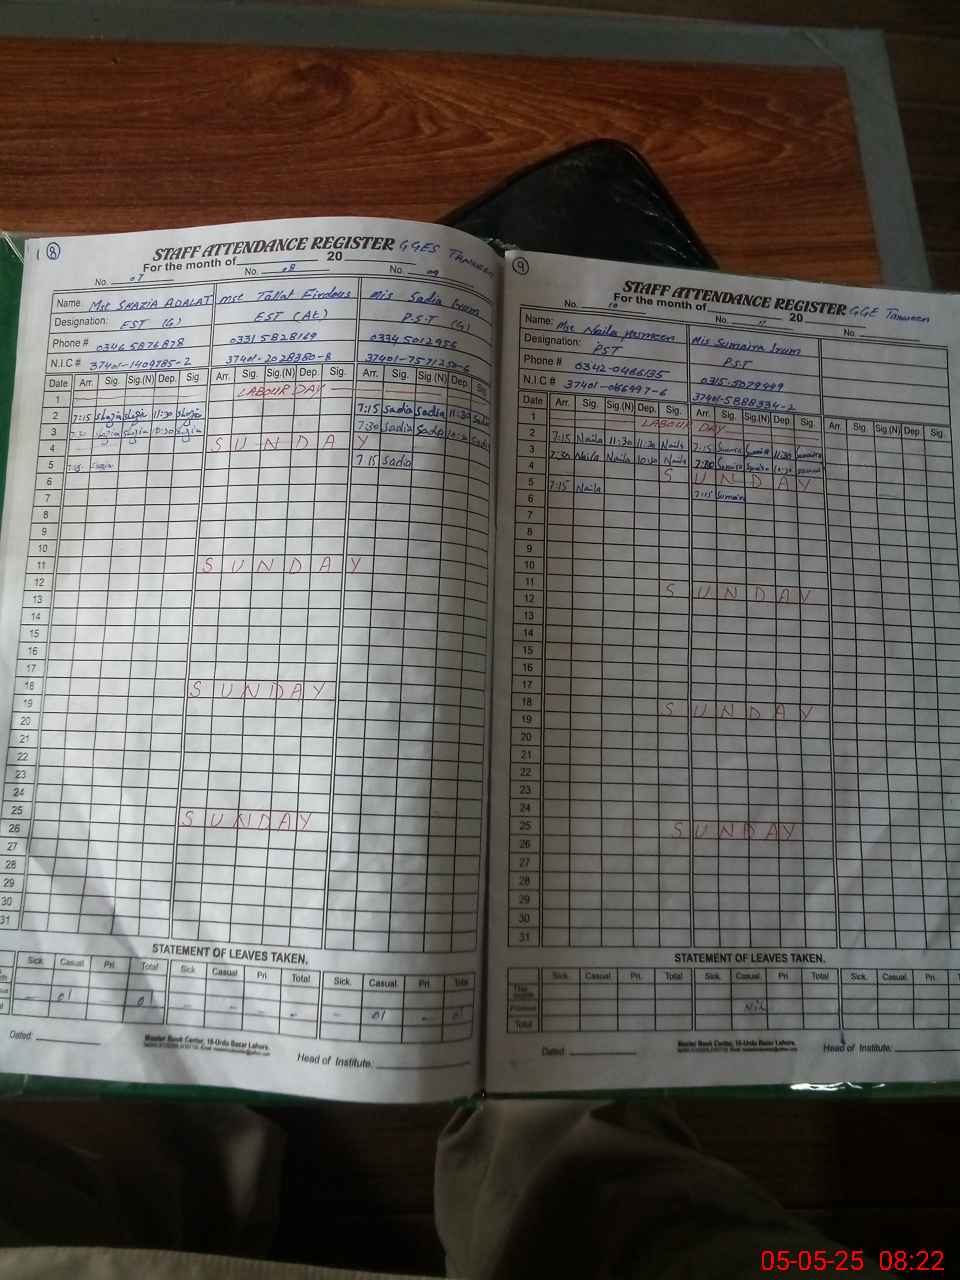 8
STAFF ATTENDANCE REGISTER GGES Tanween
For the month of 20
No. 07 No. 08 No. 09
Name: Mst SHAZIA ADALAT Mst Tallat Firdous Mis Sadia Irum
Designation: EST (G) EST (At) P.S.T (G)
Phone # 0346 5876878 0331 5828169 0334 5012956
N.I.C # 37401-1409785-2 37401-2028380-8 37401-7571250-6
Date Arr. Sig. Sig.(N) Dep. Sig. Arr. Sig. Sig.(N) Dep. Sig. Arr. Sig. Sig.(N) Dep. Sig.
1 LABOUR DAY
2 7:15 Shazia Shazia 11:30 Shazia 7:15 Sadia Sadia 11:30 Sadia
3 7:30 Shazia Shazia 10:30 Shazia 7:30 Sadia Sadia 10:30 Sadia
4 SUNDAY
5 7:15 Shazia 7:15 Sadia
6
7
8
9
10
11 SUNDAY
12
13
14
15
16
17
18 SUNDAY
19
20
21
22
23
24
25 SUNDAY
26
27
28
29
30
31
STATEMENT OF LEAVES TAKEN.
Sick. Casual. Pri. Total Sick. Casual. Pri. Total Sick. Casual. Pri. Total
- 01 01 - - - - - 01 - 01
Dated: Master Book Center, 16-Urdu Bazar Lahore.
Head of Institute:
9
STAFF ATTENDANCE REGISTER GGE Tanween
For the month of 20
No. 10 No. 11 No.
Name: Mst Naila Parneen Mis Sumaira Irum
Designation: PST P.S.T
Phone # 0342-0466135 0315-5079449
N.I.C # 37401-066997-6 37401-5888334-2
Date Arr. Sig. Sig.(N) Dep. Sig. Arr. Sig. Sig.(N) Dep. Sig. Arr. Sig. Sig.(N) Dep. Sig.
1 LABOUR DAY
2 7:15 Naila 11:30 11:30 Naila 7:15 Sumaira Sumaira 11:30 Sumaira
3 7:30 Naila Naila 10:30 Naila 7:30 Sumaira Sumaira 10:30
4 SUNDAY
5 7:15 Naila 7:15 Sumaira
6
7
8
9
10
11 SUNDAY
12
13
14
15
16
17
18 SUNDAY
19
20
21
22
23
24
25 SUNDAY
26
27
28
29
30
31
STATEMENT OF LEAVES TAKEN.
Sick. Casual. Pri. Total Sick. Casual. Pri. Total Sick. Casual. Pri.
This month
Previous Nil
Total
Dated: Master Book Center, 16-Urdu Bazar Lahore. Head of Institute:
05-05-25 08:22